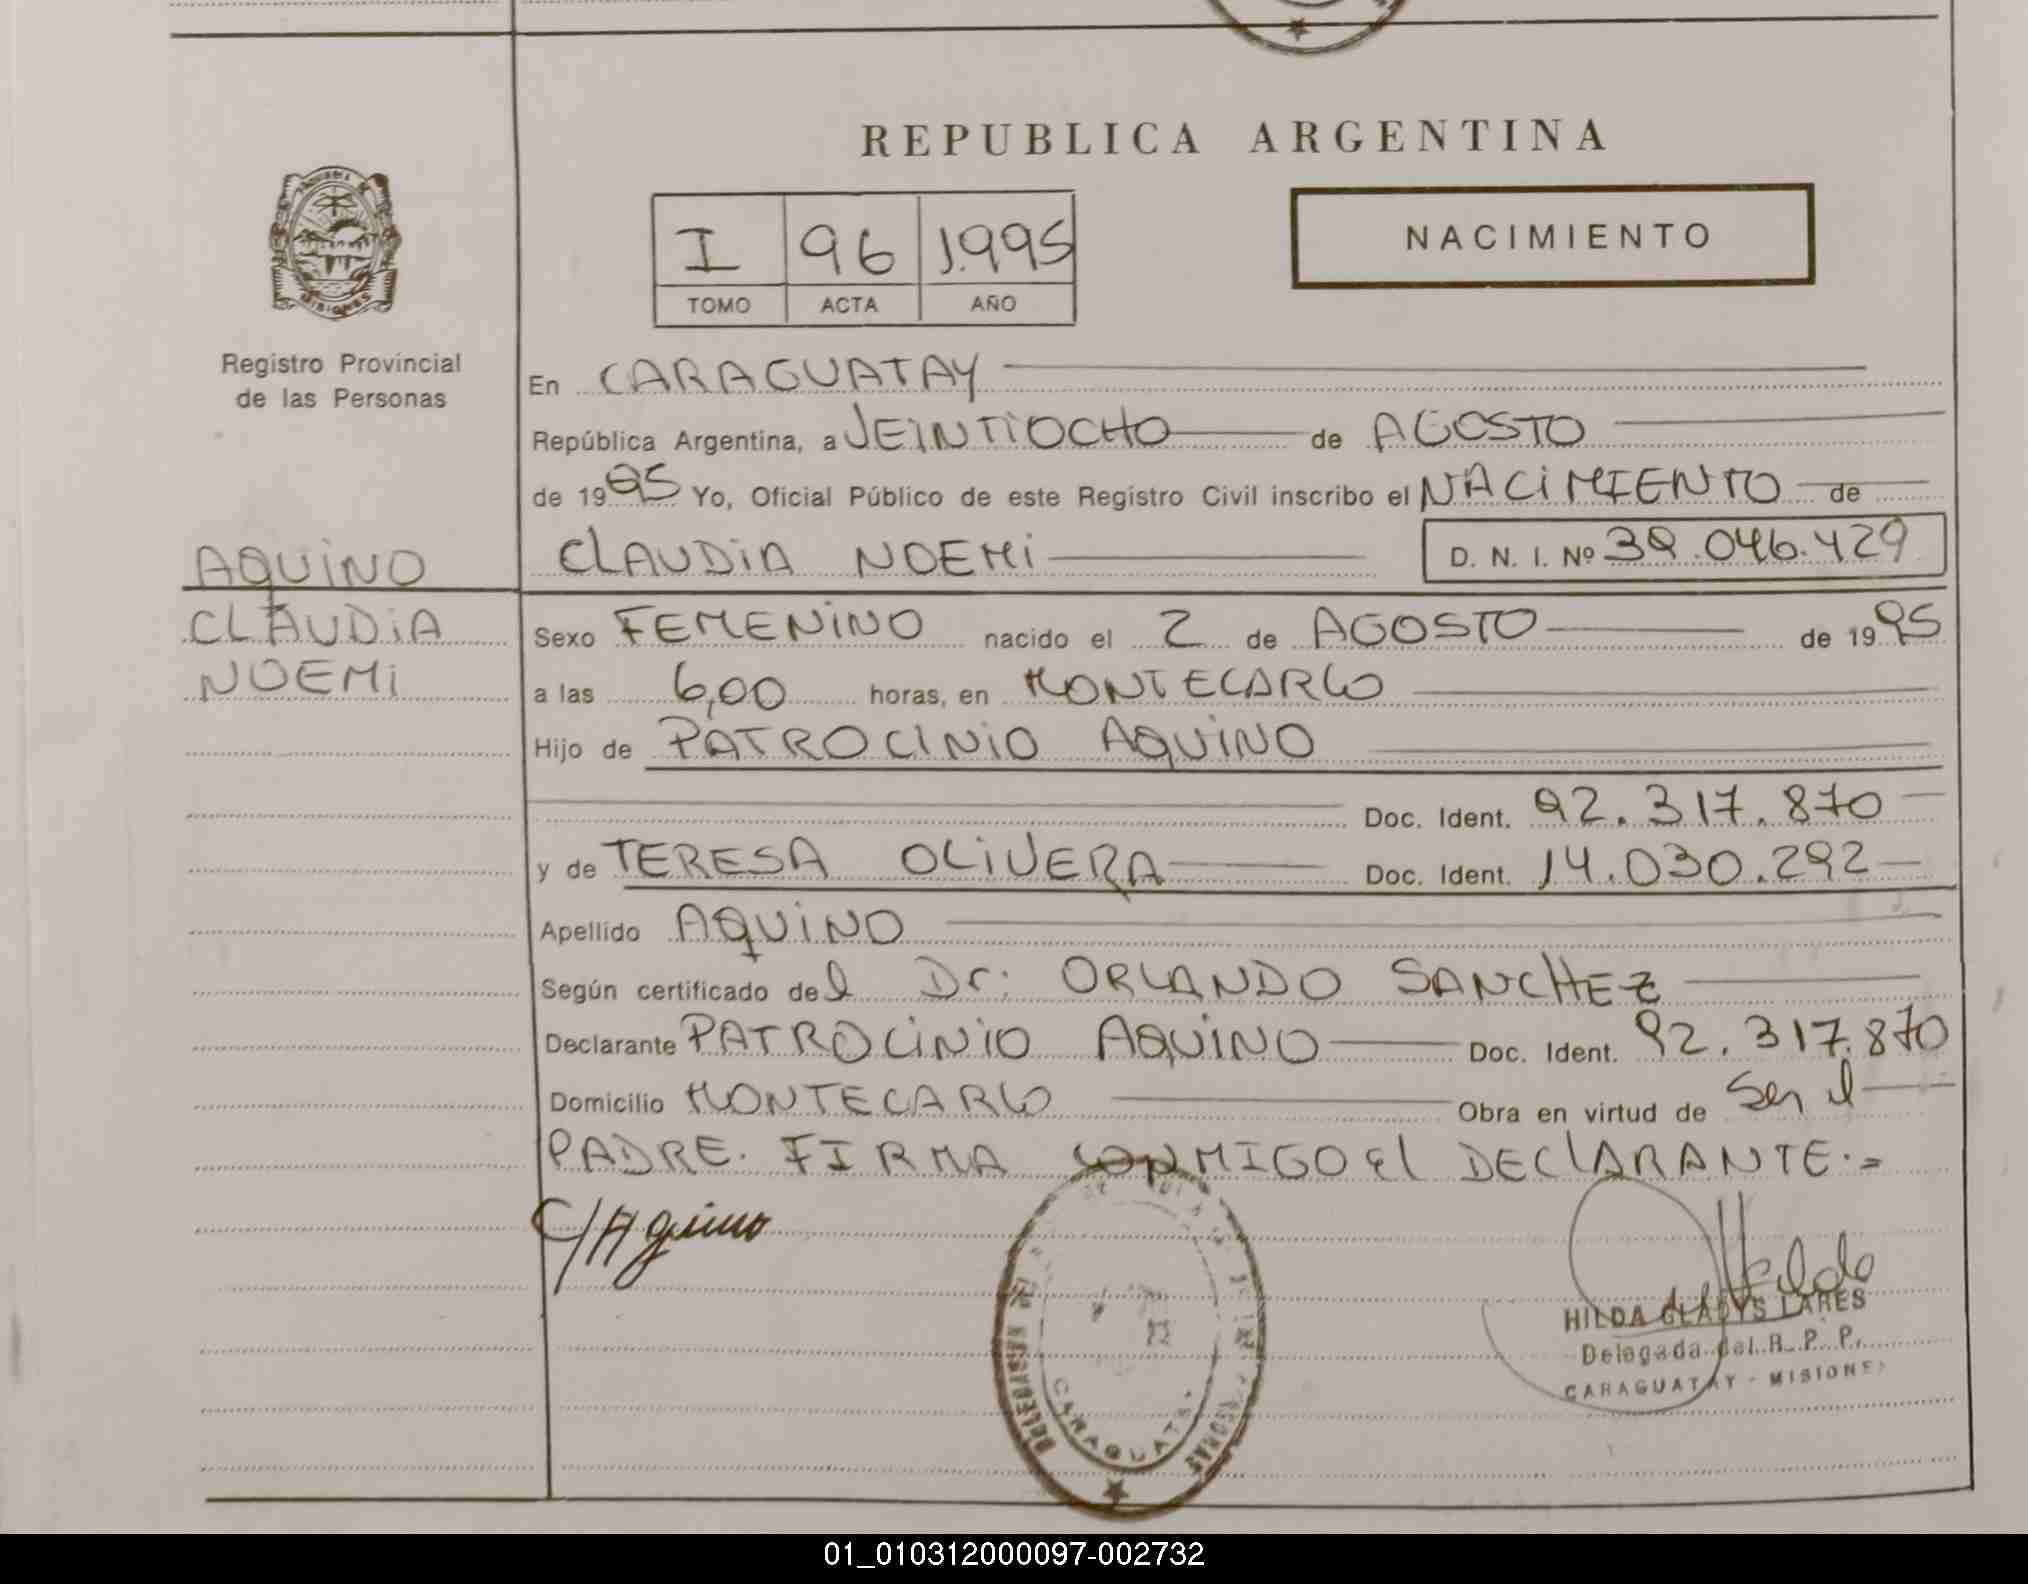 REPUBLICA ARGENTINA
I 96 1.995
TOMO ACTA AÑO
NACIMIENTO
MISIONES
Registro Provincial
de las Personas
En CARAGUATAY
República Argentina, a VEINTIOCHO de AGOSTO
de 1995 Yo, Oficial Público de este Registro Civil inscribo el NACIMIENTO de
AQUINO
CLAUDIA NOEMI D. N. I. Nº 39.046.429
CLAUDIA
NOEMI
Sexo FEMENINO nacido el 2 de AGOSTO de 1995
a las 6,00 horas, en MONTECARLO
Hijo de PATROCINIO AQUINO
Doc. Ident. 92.317.870
y de TERESA OLIVERA Doc. Ident. 14.030.292
Apellido AQUINO
Según certificado del Dr. ORLANDO SANCHEZ
Declarante PATROCINIO AQUINO Doc. Ident. 92.317.870
Domicilio MONTECARLO Obra en virtud de Ser el
PADRE. FIRMA CONMIGO El DEClARANTE.=
C/Aquino
Hilda
HILDA GLADYS LARES
Delegada del R. P. P.
CARAGUATAY - MISIONES
01_010312000097-002732